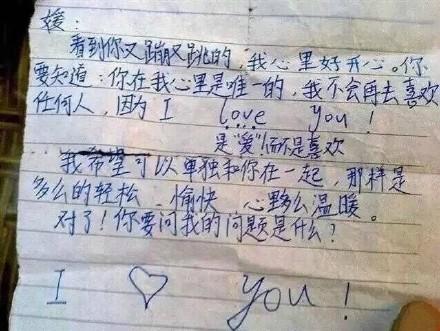 媛：
看到你又蹦又跳的，我心里好开心。你
要知道：你在我心里是唯一的，我不会再去喜欢
任何人，因为 I love you！
是"爱"而不是喜欢
我希望可以单独和你在一起，那样是
多么的轻松、愉快 心多么温暖。
对了！你要问我的问题是什么？
I ♡ you！